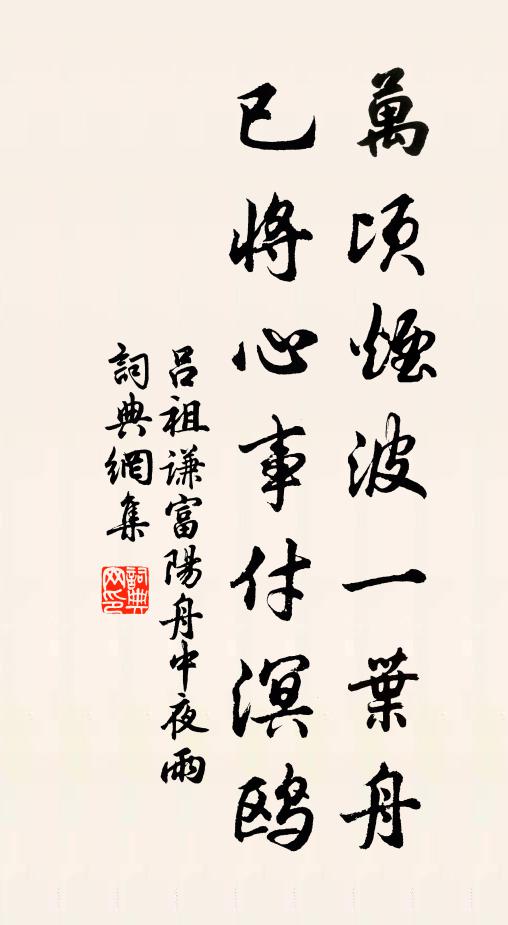 萬頃煙波一葉舟
已將心事付溟鸥
呂祖谦富陽舟中夜雨
詞典網集
詞典網印